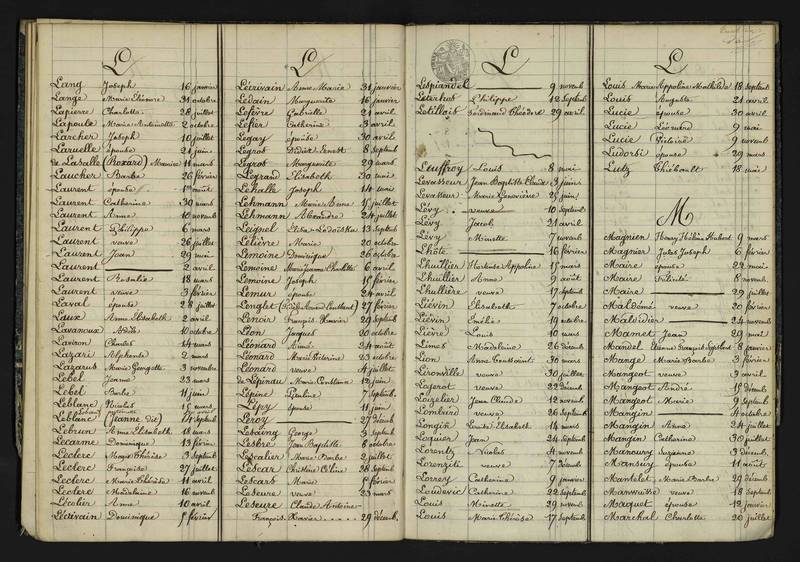 L
Lang Joseph 16 janvier
Lange Marie Etienne 31 octobre
Lapierre Charlotte 28 juillet
Lapoule Marie Antoinette 2 octob
Larcher Joseph 10 juillet
Laruelle épouse 21 juin
de Lasalle (Rozard) Maurice 11 mars
Laucher Barbe 26 février
Laurent épouse 1er août
Laurent Catherine 30 mars
Laurent Anne 10 novemb
Laurent Philippe 6 mars
Laurent veuve 26 juillet
Laurent Jean 29 mai
Laurent 2 avril
Laurent Rosalie 18 mars
Laurent veuve 3 février
Laval épouse 28 juillet
Laux Anne Elisabeth 2 avril
Lavanoux 10 octobre
Laviron Charles 14 mars
Lazari Alphonse 2 mars
Lazarus Marie Georgette 3 novembre
Lebel Jeanne 23 mars
Lebel Barbe 11 juin
Leblanc Nicolas 15 mars
Leblanc (Jeanne dit) 14 Septemb
Lebrun Anne Elisabeth 18 avril
Lecarme Dominique 13 février
Leclerc Marie Thérèse 3 Septemb
Leclerc Françoise 27 juillet
Leclerc Marie Thérèse 11 avril
Leclerc Madelaine 16 novemb
Lécolier Anne 10 avril
Lécrivain Dominique 1er février
L
Lécrivain Anne Marie 31 janvier
Ledain Marguerite 16 janvier
Lefèvre Gabrielle 21 avril
Lefler Catherine 3 avril
Legay épouse 30 avril
Legros Didier Ernest 8 Septemb
Legros Marguerite 29 mars
Legrand Elisabeth 30 mai
Lehalle Joseph 14 mai
Lehmann Marie Anne 15 juillet
Lehmann Alexandre 24 juillet
Leignel 13 Septemb
Lelièvre Marie 20 octobre
Lemoine Dominique 26 octobre
Lemoine Marie Jeanne Charlotte 6 avril
Lemoine Joseph 15 février
Lemur épouse 24 avril
Lenglet 27 février
Lenoir François Xavier 29 Septemb
Léon Jacques 20 octobre
Léonard Aimé 24 août
Léonard Marie Victorine 23 octobre
Léonard veuve 4 juillet
de Lépineau Marie Constance 12 juin
Lépine Pauline 7 Septemb
Lépy épouse 11 juin
Leroy 27 décemb
Lesaing George 3 Septemb
Lesbre Jean Baptiste 6 octobre
Lescalier Marie Barbe 2 février
Lescar Christine Céline 28 Septemb
Lescars Marie 1er février
Leseure veuve 23 mars
Leseure Claude Antoine
François Xavier 29 décemb.
L
Lespiandel 9 novemb
Leterhus Philippe 12 Septemb
Letillois Ferdinand Théodore 29 avril
Leuffroy Louis 8 mai
Levasseur Jean Baptiste Claude 3 juin
Levasseur Marie Geneviève 25 juin
Lévy veuve 10 Septemb
Lévy Jacob 21 avril
Lévy Minette 7 novemb
Lhôte 16 février
Lhuillier Hortense Appoline 15 mars
Lhuillier Anne 9 août
Lhullière veuve 17 Septemb
Liévin Elisabeth 7 octobre
Liévin Emélie 19 octobre
Lièvre Louis 10 mars
Limes Madelaine 26 Décemb
Lion Anne Toussaint 30 mars
Lironville veuve 30 juillet
Logerot veuve 22 Décemb
Loizelier Jean Claude 12 novemb
Lombard veuve 26 Septemb
Longin Louise Elisabeth 14 mars
Loquier Jean 24 Septemb
Lorentz Nicolas 4 novemb
Lorenziti veuve 7 Décemb
Lorrey Catherine 9 janvier
Louderic Catherine 22 Septemb
Louis Minette 29 novemb
Louis Marie Thérèse 17 Septemb
L
Louis Marie Appoline Mathilde 18 Septemb
Louis Auguste 21 avril
Lucie épouse 30 avril
Lucie Léonard 9 mai
Lucie Victoire 9 novemb
Ludorsi épouse 29 mars
Lutz Thiébault 18 mai
M
Magnien Henry Hélène Hubert 9 mars
Magnier Jules Joseph 6 février
Maire épouse 22 mai
Maire Félicité 8 novemb
Maire 29 juillet
Malcômé veuve 20 février
Malvidier 24 novemb
Mamet Jean 29 mai
Mandel Etienne François Sigisbert 8 janvier
Mange Marie Barbe 3 février
Mangeot veuve 9 avril
Mangeot André 15 Décemb
Mangeot Marie 9 Septemb
Mangin 4 octobre
Mangin Anna 24 juillet
Mangin Catherine 30 juillet
Manoury Suzanne 3 Décemb
Mansuy épouse 11 août
Mantelet Marie Barbe 29 Décemb
veuve 18 Septemb
Maquet épouse 12 janvier
Marchal Charlotte 20 juillet